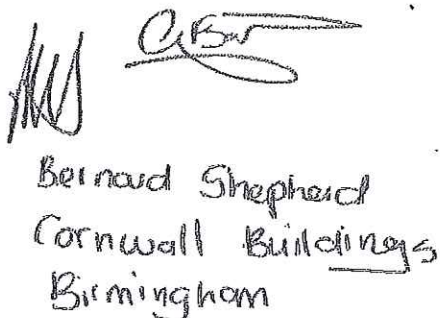 Bernard Shepherd
Cornwall Buildings
Birmingham